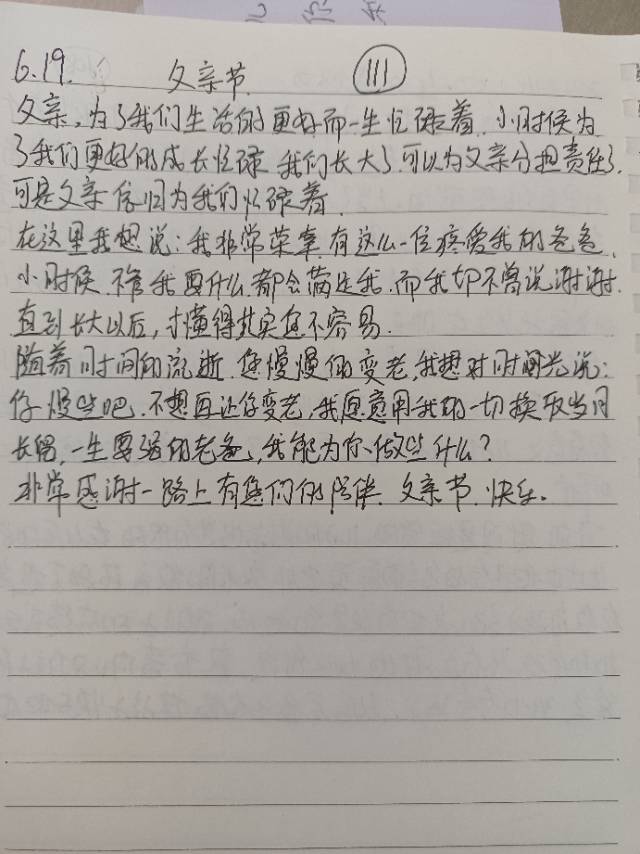 6.19. 父亲节 111
父亲,为了我们生活的更好而一生忙碌着.小时候为
了我们更好的成长忙碌 我们长大了.可以为父亲分担责任了.
可是父亲 依旧为我们忙碌着.
在这里我想说:我非常荣幸.有这么一位疼爱我的爸爸.
小时候.不管我要什么.都会满足我.而我却不曾说谢谢.
直到长大以后,才懂得其实您不容易.
随着时间的流逝.您慢慢的变老,我想对时间光说:
你慢些吧.不想再让你变老,我愿意用我的一切换取岁月
长留,一生要强的老爸,我能为你做些什么?
非常感谢一路上有您们的陪伴.父亲节.快乐.